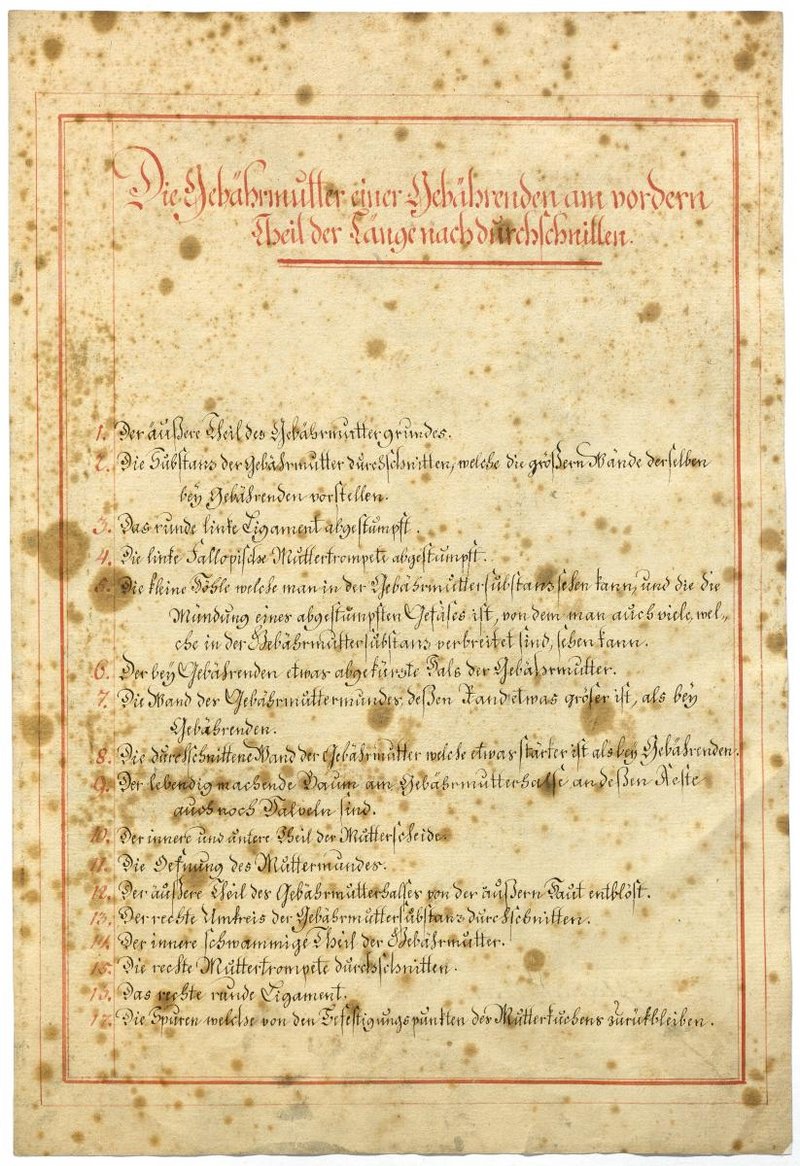 Die Gebährmutter einer Gebährenden am vordern
Theil der Länge nach durchschnitten.
1. Der äußere Theil des Gebährmuttergrundes.
2. Die Substanz der Gebährmutter durchschnitten, welche die größern Wände derselben
bey Gebährenden vorstellen.
3. Das runde linke Ligament abgestumpft.
4. Die linke Fallopische Muttertrompete abgestumpft.
5. Die kleine Höhle welche man in der Gebährmuttersubstanz sehen kann, und die die
Mündung eines abgestumpften Gefäses ist, von dem man auch viele, wel-
che in der Gebährmuttersubstanz verbreitet sind, sehen kann.
6. Der bey Gebährenden etwas abgekürzte Hals der Gebährmutter.
7. Die Wand des Gebährmuttermundes, deßen Rand etwas gröser ist, als bey
Gebährenden.
8. Die durchschnittene Wand der Gebährmutter welche etwas stärker ist als bey Gebährenden.
9. Der lebendig machende Baum am Gebährmutterhalse an deßen Aeste
auch noch Valveln sind.
10. Der innere und untere Theil der Mutterscheide.
11. Die Oefnung des Muttermundes.
12. Der äußere Theil des Gebährmutterhalses von der äußern Haut entblöst.
13. Der rechte Umkreis der Gebährmuttersubstanz durchschnitten.
14. Der innere schwammige Theil der Gebährmutter.
15. Die rechte Muttertrompete durchschnitten.
16. Das rechte runde Ligament.
17. Die Spuren welche von den Befestigungspunkten des Mutterkuchens zurükbleiben.